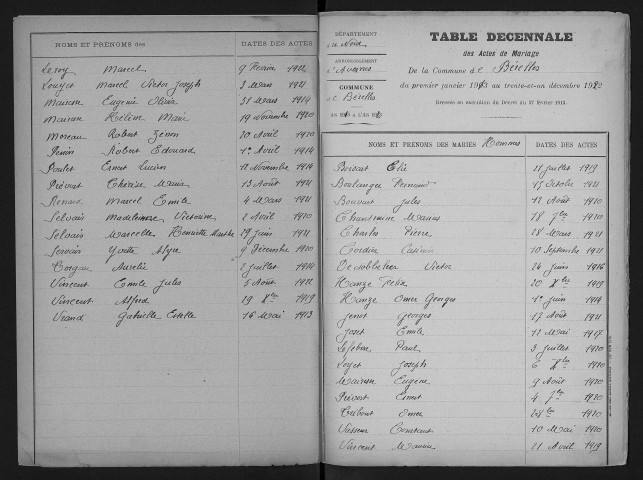 NOMS ET PRÉNOMS des
DATES DES ACTES
Leroy Marcel 9 Février 1922
Louyet Marcel Victor Joseph 3 Mars 1921
Maresse Eugénie Olivia 31 Mars 1914
Maresse Hélène Marie 19 Novembre 1920
Moreau Robert Zénon 20 Avril 1920
Robert Edouard 1er Avril 1914
Poulet Ernest Lucien 11 Novembre 1914
Prévost Thérèse Maria 13 Août 1921
Renard Marcel Emile 4 Mars 1921
Selvais Madeleine Victorine 2 Avril 1920
Selvais Marcelle Henriette Marthe 29 Juin 1921
Servais Yvette 9 Décembre 1920
Aurélie 2 Juillet 1914
Vincent Emile Jules 5 Août 1922
Vincent Alfred 29 Xbre 1919
Gabrielle Estelle 16 Mai 1913
DÉPARTEMENT
du Nord
ARRONDISSEMENT
d'Avesnes
COMMUNE
de Bérelles
TABLE DÉCENNALE
des Actes de Mariage
De la Commune de Bérelles
du premier janvier 1913 au trente-et-un décembre 1922
Dressée en exécution du Décret du 17 février 1815.
NOMS ET PRÉNOMS DES MARIÉS Hommes
DATES DES ACTES
Elie 21 Juillet 1919
Boulanger Fernand 15 Octobre 1921
Bouvart Jules 12 Août 1920
Marius 18 7bre 1920
Charles Pierre 28 Mars 1921
Cordier Casimir 10 Septembre 1921
Victor 24 Juin 1916
Hanze Felix 20 Xbre 1919
Hanze Omer Georges 1er Juin 1914
Jenot Georges 17 Août 1921
Joset Emile 12 Mai 1917
Lefebvre Paul 3 Juillet 1920
Loyet Joseph 6 Xbre 1920
Mairesse Eugène 9 Août 1920
Prévost Ernest 4 7bre 1920
Tribout Omer 1920
Vasseur Constant 10 Mai 1920
Vincent 21 Avril 1919